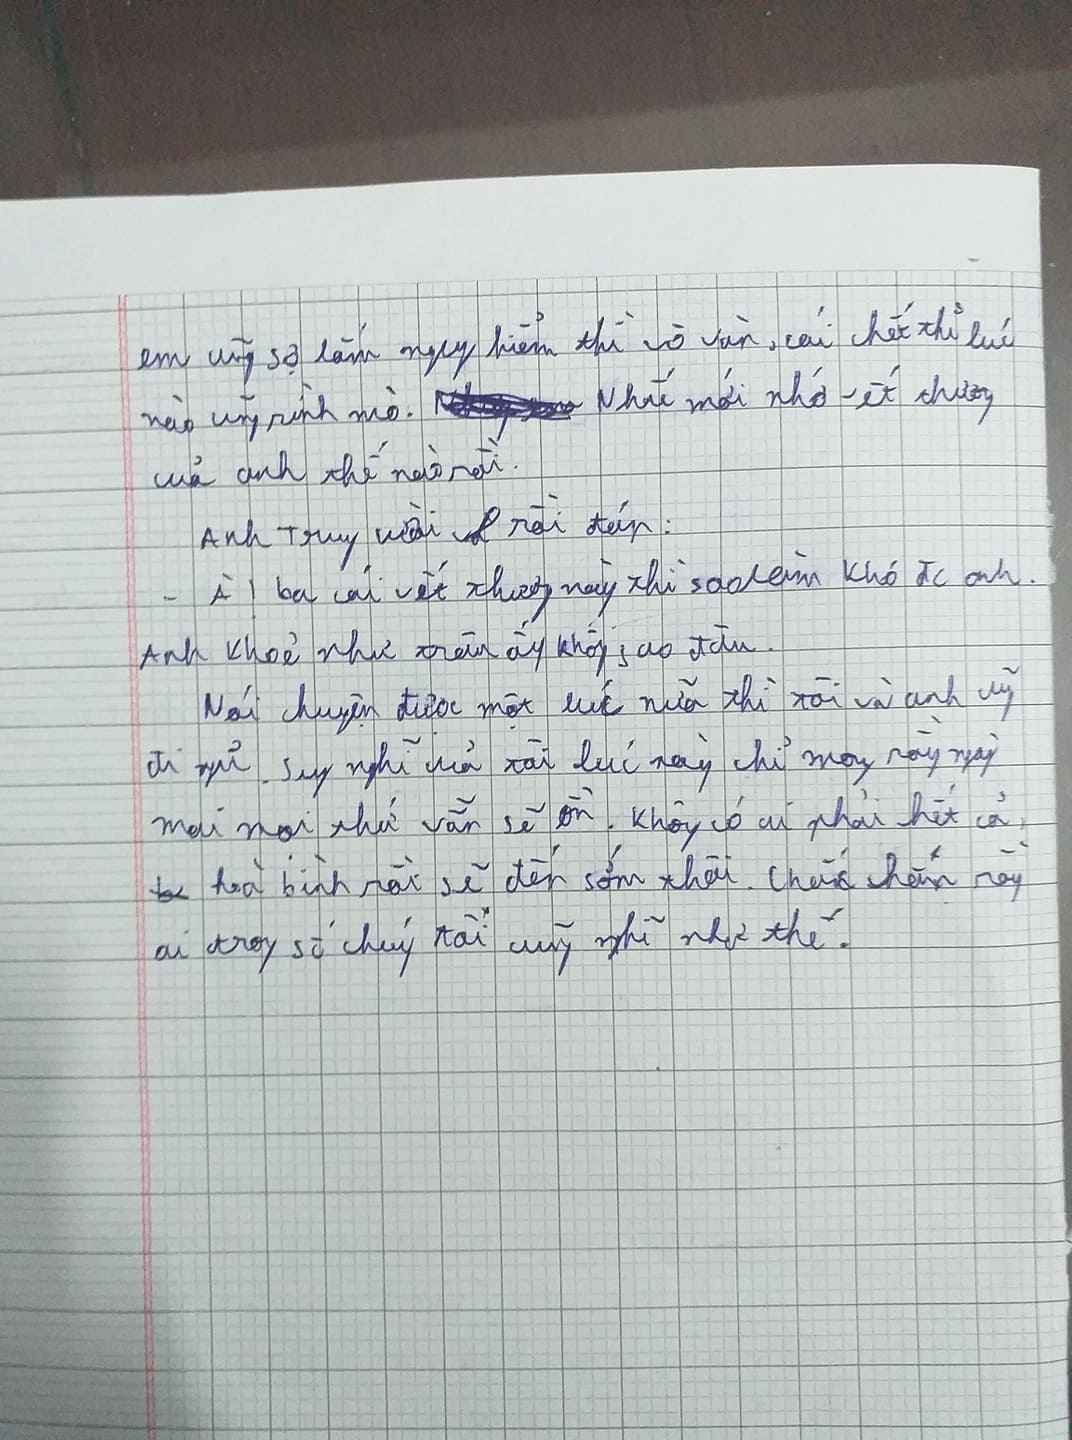 em cũg sợ lắm nguy hiểm thì vô vàn, cái chết thì lúc
nào cũg rình mò. Nhắc mới nhớ vết thươg
của anh thế nào rồi.
Anh Truy cười rồi đáp:
- À! ba cái vết thươg này thì sao làm khó đc anh.
Anh khoẻ như trâu ấy khôg sao đâu.
Nói chuyện được một lúc nữa thì tôi và anh cũg
đi ngủ. Suy nghĩ của tôi lúc này chỉ mog rằg ngày
mai mọi thứ vẫn sẽ ổn. Khôg có ai phải hết cả,
hoà bình rồi sẽ đến sớm thôi. Chắc chắn rằg
ai trog số chúg tôi cũg nghĩ như thế.